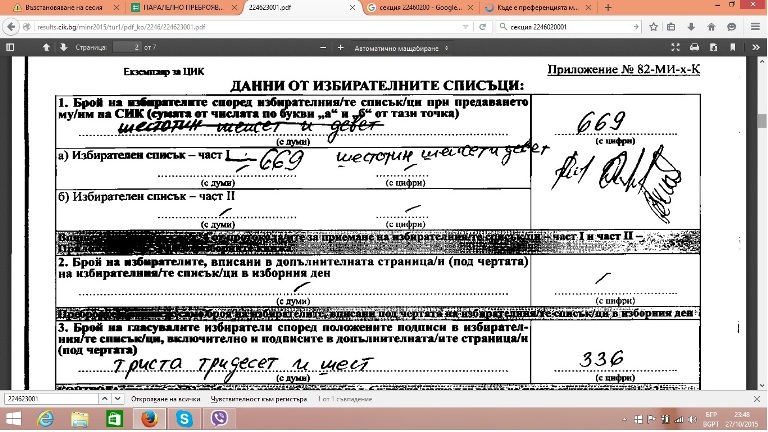 Възстановяване на сесия
ПАРАЛЕЛНО ПРЕБРОЯВ...
224623001.pdf
секция 22460200 - Google...
Къде е преференцията м...
results.cik.bg/minr2015/tur1/pdf_ko/2246/224623001.pdf
секция 2246020001
Страница: 2 от 7
Автоматично мащабиране
Екземпляр за ЦИК
Приложение № 82-МИ-х-К
ДАННИ ОТ ИЗБИРАТЕЛНИТЕ СПИСЪЦИ:
1. Брой на избирателите според избирателния/те списък/ци при предаването
му/им на СИК (сумата от числата по букви „а“ и „б“ от тази точка)
шестотин шейсет и девет
669
(с думи)
(с цифри)
а) Избирателен списък – част I 669 шестотин шейсет и девет
(с думи) (с цифри)
б) Избирателен списък – част II
(с думи) (с цифри)
за приемане на избирателния/те списък/ци – част I и част II –
2. Брой на избирателите, вписани в допълнителната страница/и (под чертата)
на избирателния/те списък/ци в изборния ден
(с думи)
(с цифри)
вписани под чертата на избирателния/те списък/ци в изборния ден
3. Брой на гласувалите избиратели според положените подписи в избирател-
ния/те списък/ци, включително и подписите в допълнителната/ите страница/и
(под чертата)
триста тридесет и шест
336
(с думи)
(с цифри)
224623001
Открояване на всички
Чувствителност към регистъра
1 от 1 съвпадение
БГР
BGPT
23:48
27/10/2015